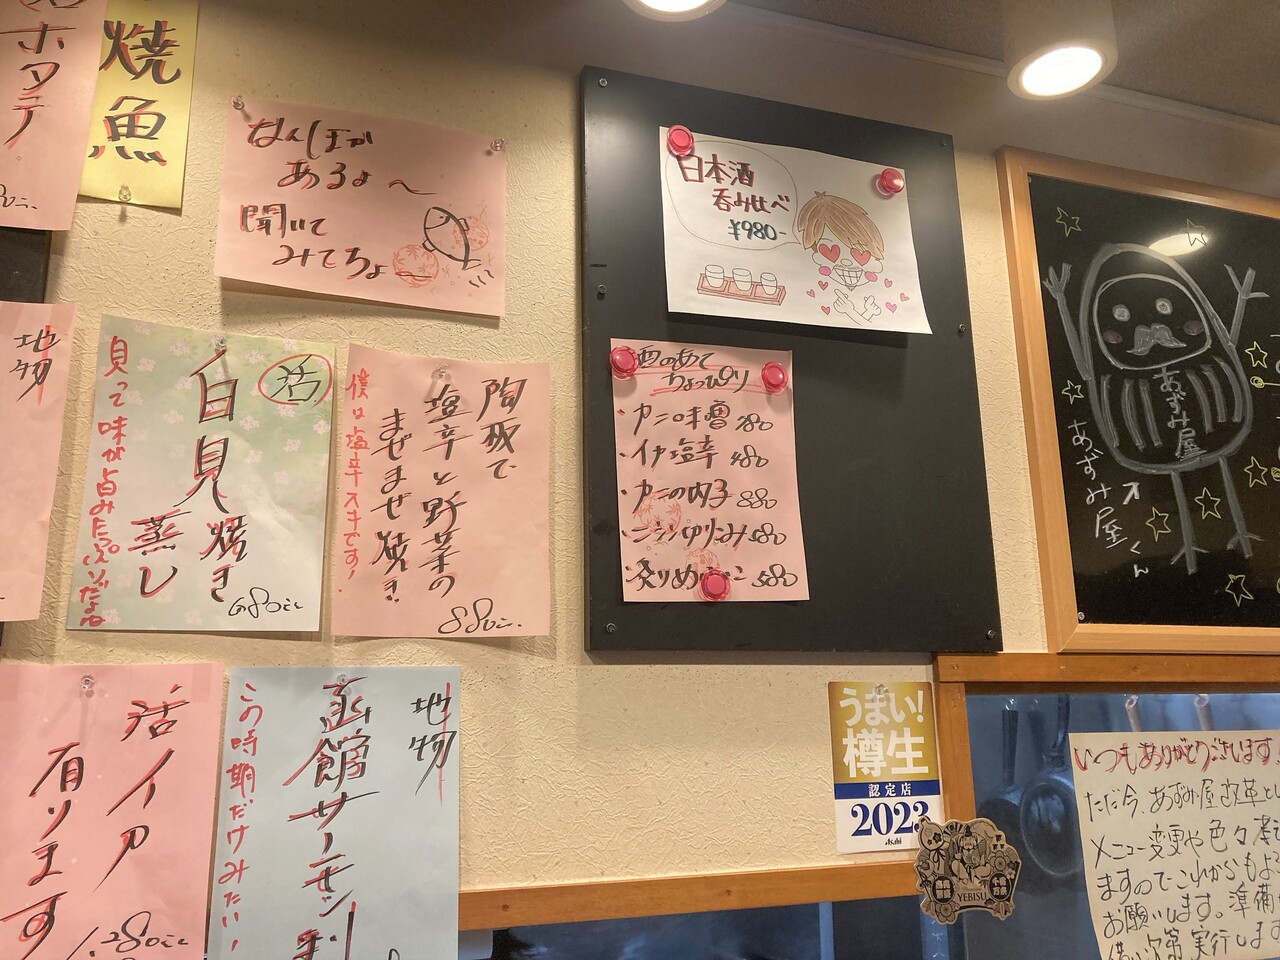 ホタテ
焼魚
なんしまが
あるよ〜
聞いて
みてちょー
地物
活
白貝焼き
蒸し
貝って味が占みたっぷりだよね
680
陶板で
塩辛と野菜の
まぜまぜ焼き
僕は塩辛スキです!
880
日本酒
呑み比べ
¥980-
酒のあて
ちょっぴり
・カニ味噌 780
・イカ塩辛 480
・カニの内子 880
・ニシンゆりみ 580
580
あずみ屋
あずみ屋くん
活イカ
有ります
1,280
地物
函館サーモン刺
この時期だけみたい!
うまい!
樽生
認定店
2023
Asahi
YEBISU
いつもありがとうございます
ただ今、あずみ屋改革とし
メニュー変更や色々
ますのでこれからもよ
お願いします。準備
次第、実行します